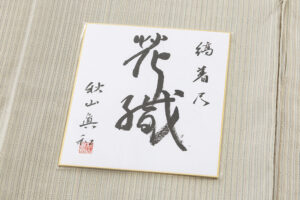 縞着尺
花織
秋山眞和